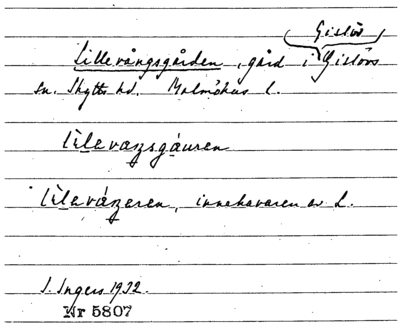 Gislöv
Lillevångsgården, gård i Gislövs
sn. Skytts hd. Malmöhus l.
lìlavaŋsgáuren
lìlaváŋeren, innehavaren av L.
I. Ingers 1932.
Nr 5807